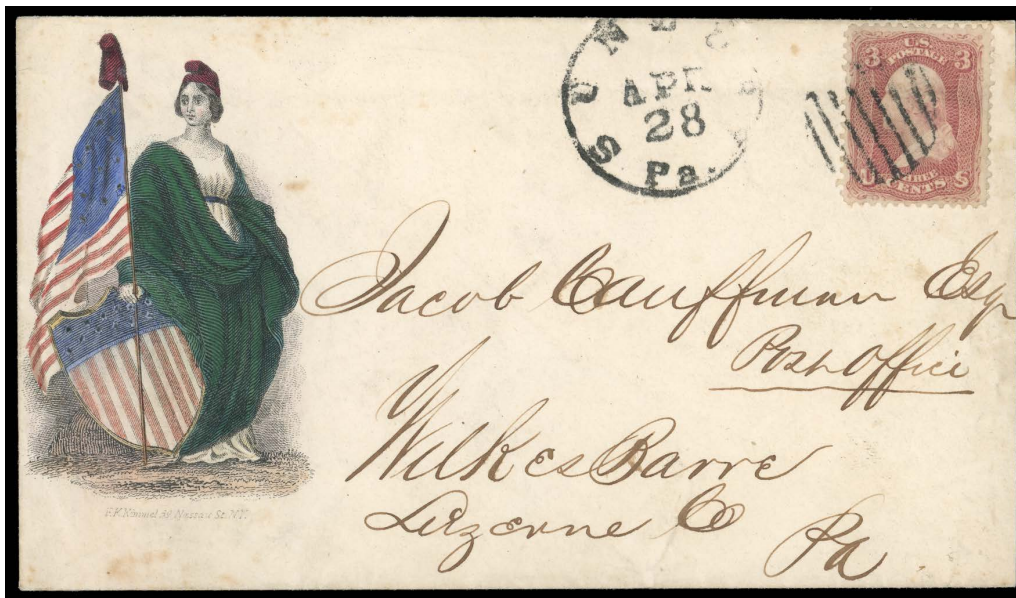 SUNB
APR
28
Pa.
3 U.S. 3
POSTAGE
THREE
CENTS
Jacob Cauffman Esqr
Post Office
Wilkes Barre
Luzerne Co
Pa
Nassau St. N.Y.